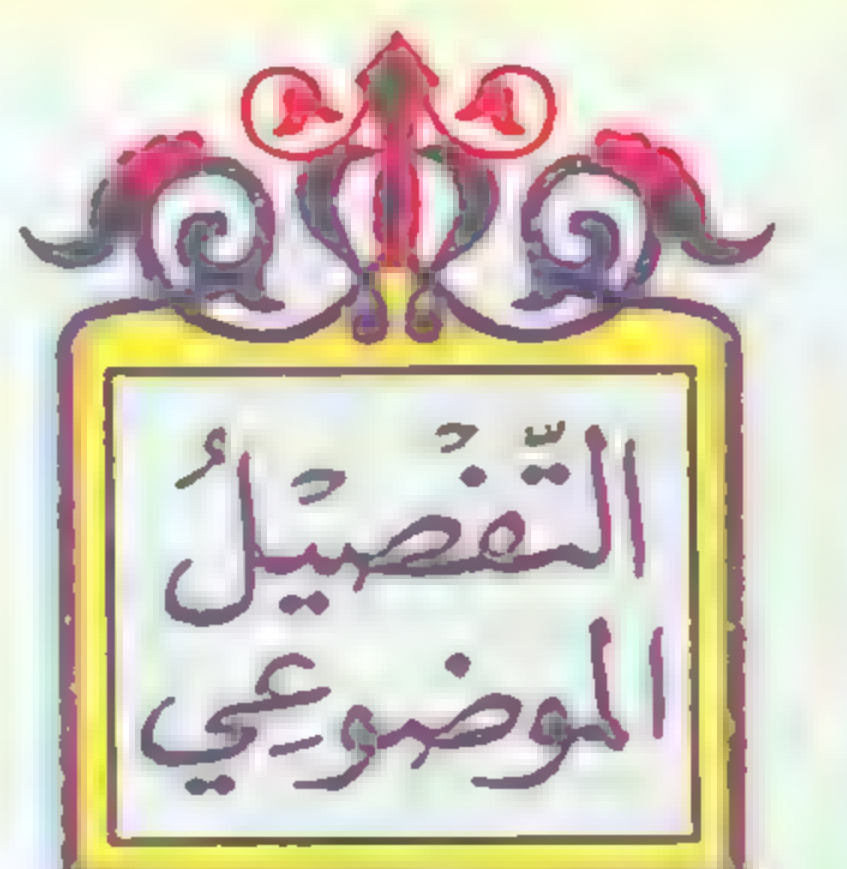 التَّفْصِيْلُ
الموضوعِي